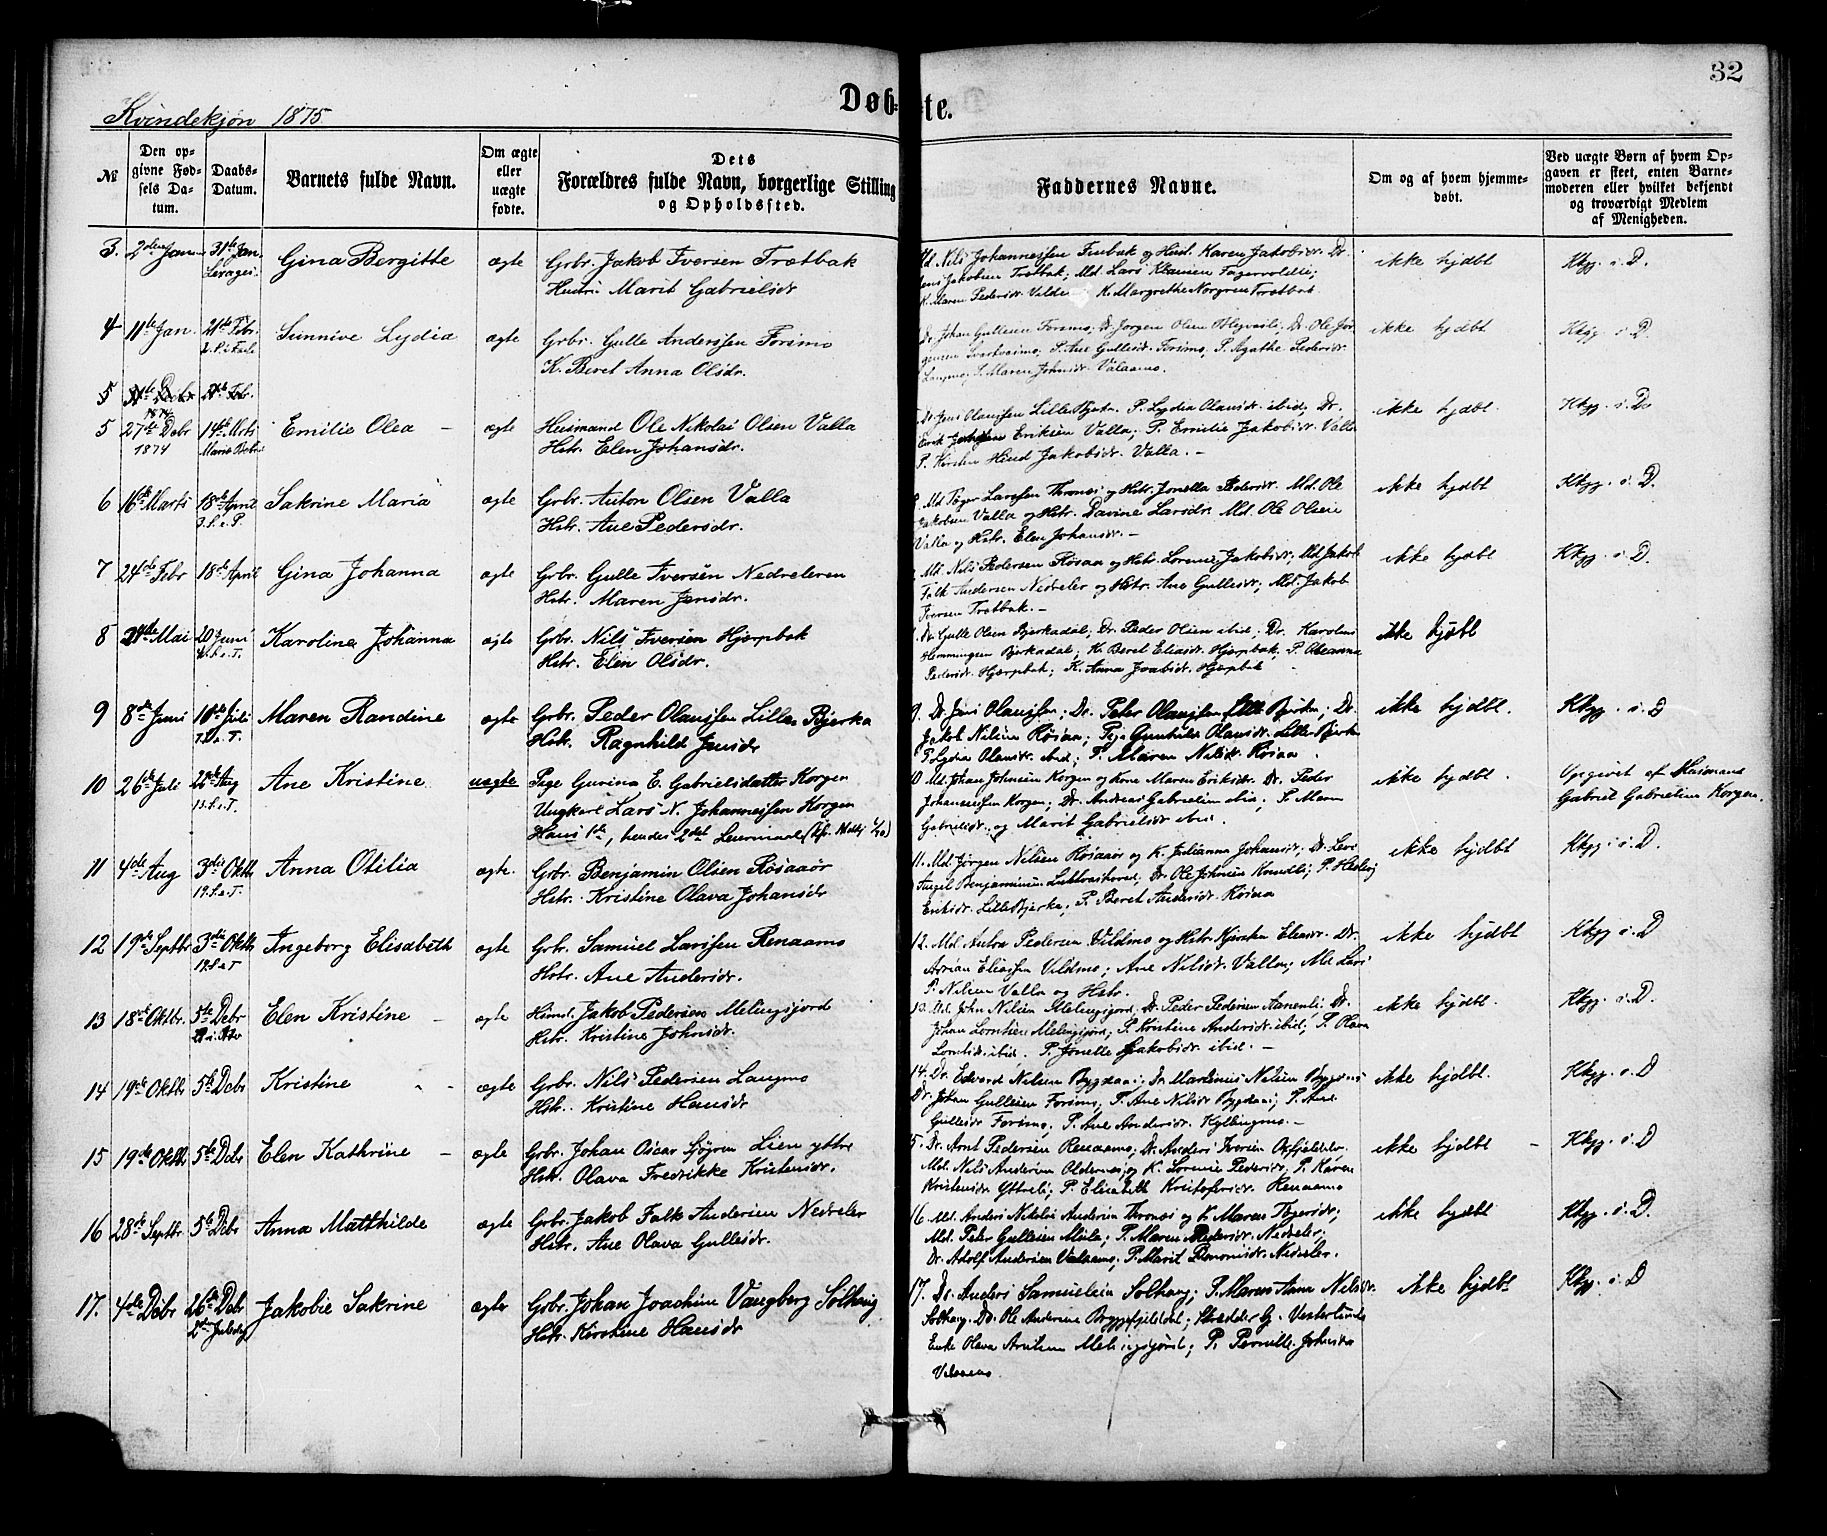 32
Døbte.
Kvindekjøn 1875.
№
Den opgivne Fødsels Datum.
Daabs-Datum.
Barnets fulde Navn.
Om ægte eller uægte fødte.
Dets Forældres fulde Navn, borgerlige Stilling og Opholdssted.
Faddernes Navne.
Om og af hvem hjemmedøbt.
Ved uægte Børn af hvem Opgaven er skeet, enten Barnemoderen eller hvilket bekjendt og troværdigt Medlem af Menigheden.
3. 2den Jan 31te Jan. Gina Bergitte ægte Grbr. Jakob Iversen Trætbak
Hustru Marit Gabrielsdr
Md. Nils Johannessen Finbak og Hust. Karen Jakobsdr. Dr.
Jens Jakobsen Trætbak; Md. Lars Klausen
K. Maren Pedersdr. K. Margrethe Norgren Trætbak
ikke hjdbt Kkgj. i. D.
4 11te Jan. 21de Febr. Sunnive Lydia ægte Grbr. Gulle Anderssen Forsmo
K. Beret Anna Olsdr.
Dr. Johan Gullesen Forsmo; Dr. Jørgen Olsen Dr. Ole Jør-
gensen P. Ane Gullesdr. Forsmo, P. Agathe Pedersdr.
Langmo, P. Maren Johnsdr. Valaamo.
ikke hjdbt Kkgj. i D.
5
5 27de Debr 1874 14de Mrts Emilie Olea - ægte Husmand Ole Nikolai Olsen Valla
Hstr. Elen Johansdr.
Dr. Jens Olaussen Lille Bjerka. P. Lydia Olausdr. ibid; Dr.
Eriksen Valla; P. Emilie Jakobsdr. Valla
P. Kirsten Jakobsdr. Valla. -
ikke hjdbt. Kkgj. i. D.
6 16de Marts 18de April 3. S. e. P. Sakrine Maria ægte Grbr. Anton Olsen Valla
Hstr. Ane Pedersdr.
Md. Tøger Larssen Thronæs og Hstr. Jonella Pedersdr. Md. Ole
Jakobsen Valla og Hstr. Davine Larsdr. Md. Ole Olsen
Valla og Hstr. Elen Johansdr. -
ikke hjdbt Kkgj. i. D.
7 24de Febr 18de April Gina Johanna ægte Grbr. Gulle Iversen Nedreleren
Hstr. Maren Jensdr.
Md. Nils Pedersen Røsaa og Hstr. Lorense Jakobsdr; Md. Jakob
Falk Andersen Nedreler og Hstr. Ane Gullesdr; Md. Jakob
Iversen Trætbak. -
ikke hjdbt Kkgj. i D.
8 24de Mai 20 Juni Karoline Johanna ægte Grbr. Nils Iversen Hjerpbak
Hstr. Elen Olsdr.
Dr. Gulle Olsen Bjerkadal; Dr. Peder Olsen ibid; Dr. Karolius
Hemmingsen Bjerkadal; K. Beret Eliasdr. Hjerpbak; P.
Pedersdr. Hjerpbak; K. Anna Hjerpbak -
ikke hjdbt
9 8de Juni Juli Maren Randine ægte Grbr. Peder Olaussen Lille Bjerka
Hstr. Ragnhild Jensdr
9. Dr. Jens Olaussen; Dr. Peter Olaussen Lille Bjerka; Dr.
Jakob Nilsen Røsaa; Olausdr. Lille Bjerka
P. Lydia Olausdr. ibid; P. Maren Nilsdr. Røsaa
ikke hjdbt. Kkgj. i D
10 26de Juli 22de Aug Ane Kristine uægte Pige Gurina E. Gabrielsdatter Korgen
Ungkarl Lars N. Johannessen Korgen
Hans 1ste, hendes 2det Leiermaal
10 Md. Johan Johnsen Korgen og Kone Maren Eriksdr. Dr. Peder
Johannessen Korgen; Dr. Andreas Gabrielsen ibid. P. Maren
Gabrielsdr. og Marit Gabrielsdr ibid.
ikke hjdbt. Opgivet af Husmand
Gabriel Gabrielsen Korgen.
11 4de Aug 3die Oktb 19. S. e. T. Anna Otilia ægte. Grbr. Benjamin Olsen Røsaaør
Hstr. Kristine Olava Johansdr
11. Md. Jørgen Nilsen Røsaaør og K. Julianna Johansdr; Dr. Levi
Benjaminsen Dr. Ole Johnsen P. Hedvig
Eriksdr. Lille Bjerka; P. Beret Andersdr. Røsaa
ikke hjdbt Kkgj. i. D.
12 19de Septbr 3die Oktb 19. S. e. T Ingeborg Elisabeth ægte Grbr. Samuel Larssen Renaamo
Hstr. Ane Andersdr.
12. Md. Anton Pedersen Vildmo og Hstr. Kjersten Eliasdr. Dr.
Adrian Eliassen Vildmo; Ane Nilsdr. Valla; Md Lars
P. Nilsen Valla og Hstr.
ikke hjdbt Kkgj i. D
13 18de Oktbr. 5te Debr Elen Kristine - ægte Husmd. Jakob Pedersen Melingsjord
Hstr. Kristine Johnsdr.
13. Md. John Nilsen Melingsjord, Dr. Peder Pedersen Aanenli; Dr.
Johan Lorntsen Melingsjord; P. Kristine Andersdr. ibid; P. Olava
Lorntsdr. ibid. P. Jonelle Jakobsdr. ibid. -
ikke hjdbt. Kkgj. i. D.
14 19de Oktb 5te Debr Kristine - ægte Grbr. Nils Pedersen Langmo
Hstr. Kristine Hansdr
14. Dr. Edvard Nilsen Bygdaas; Dr Martinus Nilsen Bygdaas
Dr. Johan Gullesen Forsmo; P. Ane Nilsdr Bygdaas; P. Ane
Gullesdr Forsmo; P. Ane Andersdr. Kyllingmo. -
ikke hjdbt. Kkgj. i. D
15 19de Oktb 5te Debr Elen Kathrine - ægte Grbr. Johan Oscar Sjøgren Lien yttre
Hstr. Olava Fredrikke Kristensdr.
15. Dr. Arnt Pedersen Renaamo; Dr. Anders Iversen
Md. Nils Andersen Oldernes og K. Lorense Pedersdr; P. Karen
Kristensdr. Ytterli; P. Elisabeth Kristofersdr. Renaamo
ikke hjdbt - Kkgj. i. D
16 28de Septbr. 5te Debr Anna Matthilde ægte Grbr. Jakob Falk Andersen Nedreler
Hstr. Ane Olava Gullesdr.
16. Md. Anders Nikolai Andersen Thronæs og K. Maren Tøgersdr;
Md. Peter Gullesen P. Maren Pedersdr. Nedreler;
Dr. Adolf Andersen Valaamo; P. Marit Nedreler.
ikke hjdbt Kkgj. i. D.
17. 4de Debr 26de Debr 2den Juledag Jakobie Sakrine ægte Grbr. Johan Joachim Vangberg Solhaug
Hstr. Kirstine Hansdr
17. Dr. Anders Samuelsen Solhaug; P. Maren Anna Nilsdr.
Solhaug. Dr. Ole Andersen Bryggfjeldal; Skrædder G. Vesterlund
Enke Olava Melingsjord; P. Pernille Johnsdr
Valaamo.
ikke hjdbt Kkgj. i. D